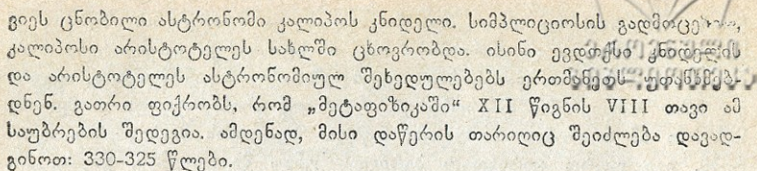 ვიეს ცნობილი ასტრონომი კალიპოს კნიდელი. სიმპლიციოსის გადმოცემით,
კალიპოსი არისტოტელეს სახლში ცხოვრობდა. ისინი ევდოქსი კნიდელის
და არისტოტელეს ასტრონომიულ შეხედულებებს ერთმანეთს უთანხმებ-
დნენ. გათრი ფიქრობს, რომ „მეტაფიზიკაში“ XII წიგნის VIII თავი ამ
საუბრების შედეგია. ამდენად, მისი დაწერის თარიღიც შეიძლება დავად-
გინოთ: 330-325 წლები.